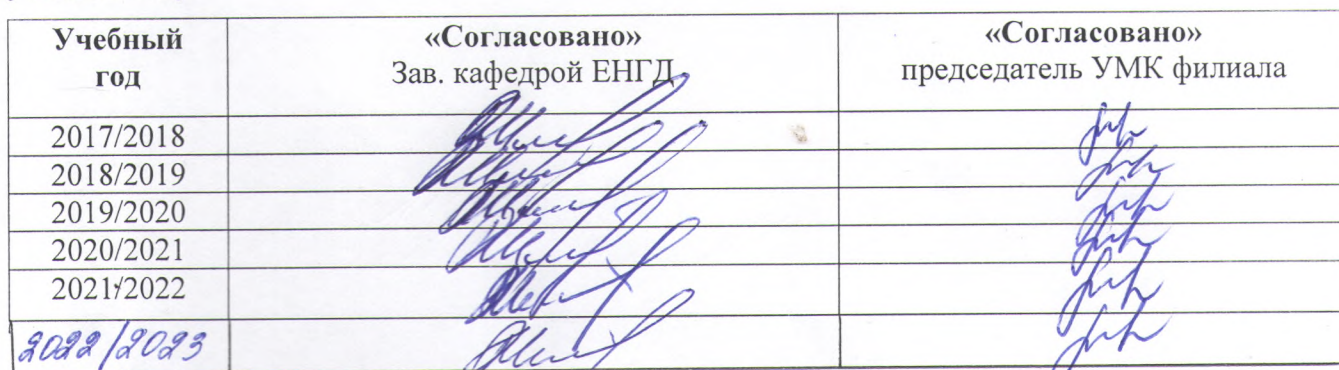 Учебный год
«Согласовано» Зав. кафедрой ЕНГД
«Согласовано» председатель УМК филиала
2017/2018
2018/2019
2019/2020
2020/2021
2021/2022
2022/2023